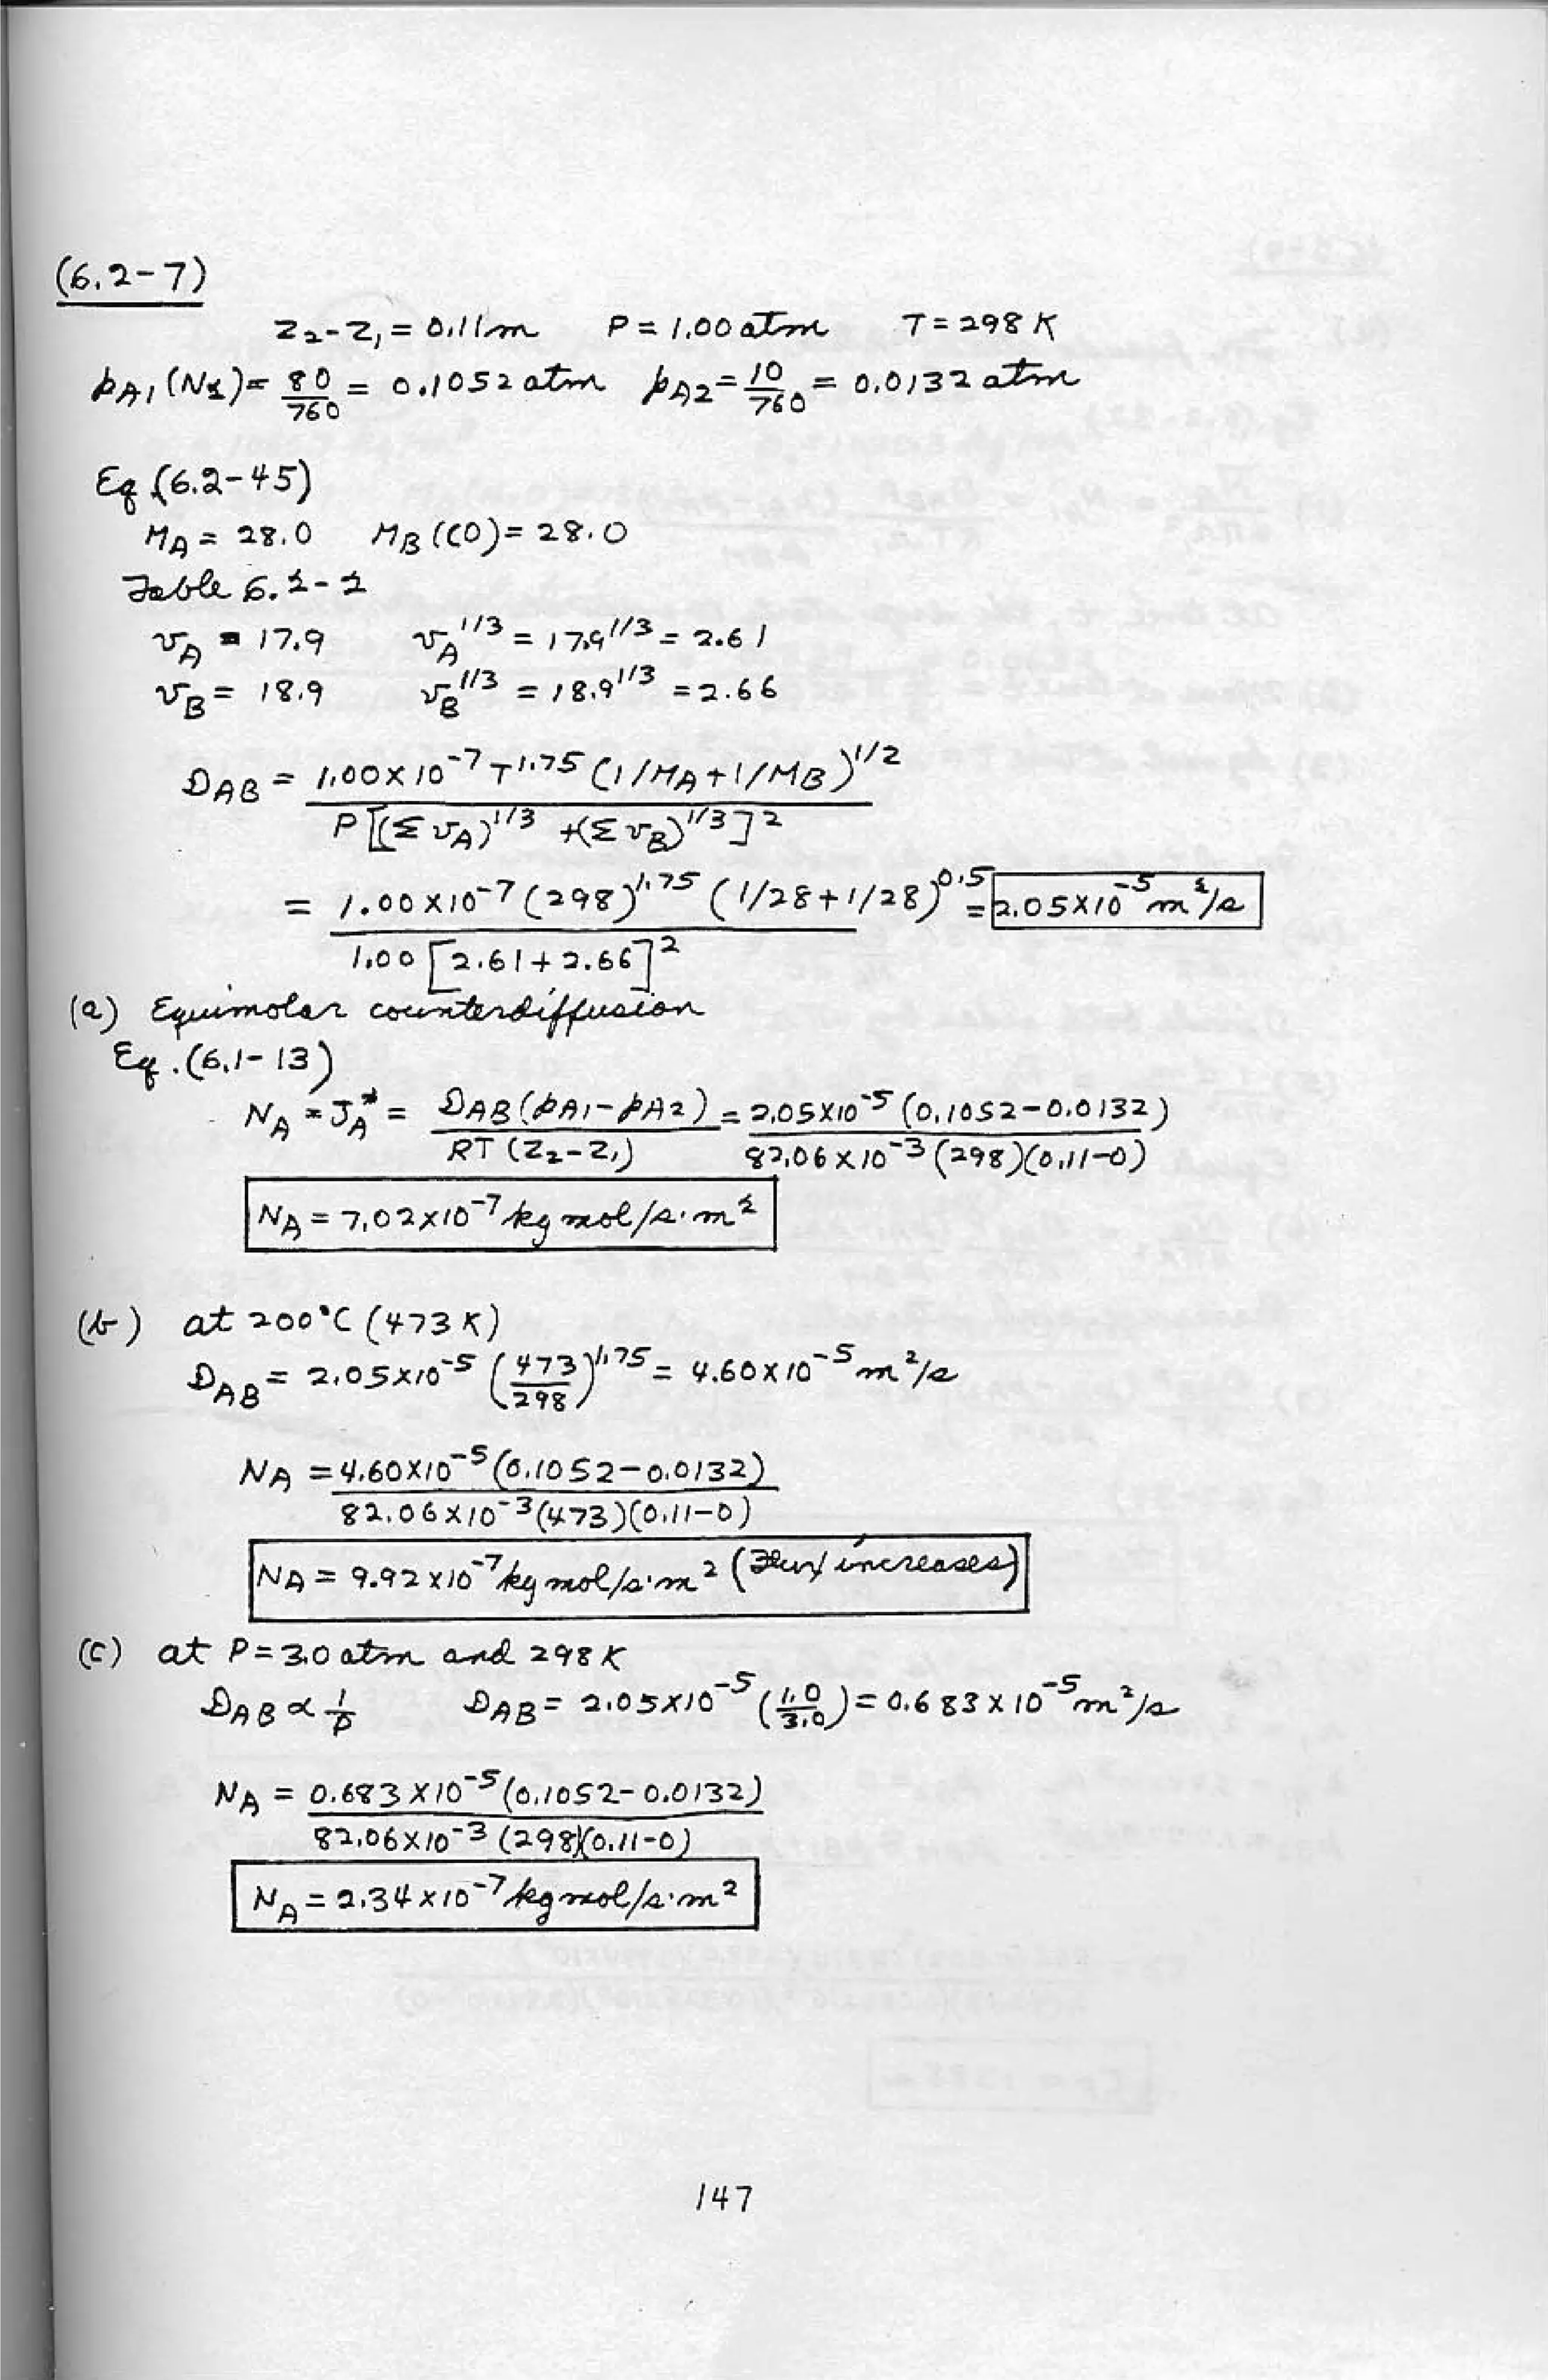 (6.2-7)
z₂-z₁ = 0.11m P = 1.00 atm T = 298 K
pA1 (N₂) = 80/760 = 0.1052 atm pA2 = 10/760 = 0.0132 atm
Eq (6.2-45)
MA = 28.0 MB (CO) = 28.0
Table 6.2-2
vA = 17.9 vA^1/3 = 17.9^1/3 = 2.61
vB = 18.9 vB^1/3 = 18.9^1/3 = 2.66
DAB = 1.00×10^-7 T^1.75 (1/MA + 1/MB)^1/2 / P[(ΣvA)^1/3 + (ΣvB)^1/3]^2
= 1.00×10^-7 (298)^1.75 (1/28 + 1/28)^0.5 / 1.00 [2.61 + 2.66]^2 = 2.05×10^-5 m²/s
(a) Equimolar counterdiffusion
Eq. (6.1-13)
NA = JA* = DAB (pA1 - pA2) / RT (z₂-z₁) = 2.05×10^-5 (0.1052-0.0132) / 82.06×10^-3 (298)(0.11-0)
NA = 7.02×10^-7 kg mol/s·m²
(b) at 200°C (473 K)
DAB = 2.05×10^-5 (473/298)^1.75 = 4.60×10^-5 m²/s
NA = 4.60×10^-5 (0.1052-0.0132) / 82.06×10^-3 (473)(0.11-0)
NA = 9.92×10^-7 kg mol/s·m² (Flux increases)
(c) at P = 3.0 atm and 298 K
DAB ∝ 1/P DAB = 2.05×10^-5 (1.0/3.0) = 0.683×10^-5 m²/s
NA = 0.683×10^-5 (0.1052-0.0132) / 82.06×10^-3 (298)(0.11-0)
NA = 2.34×10^-7 kg mol/s·m²
147